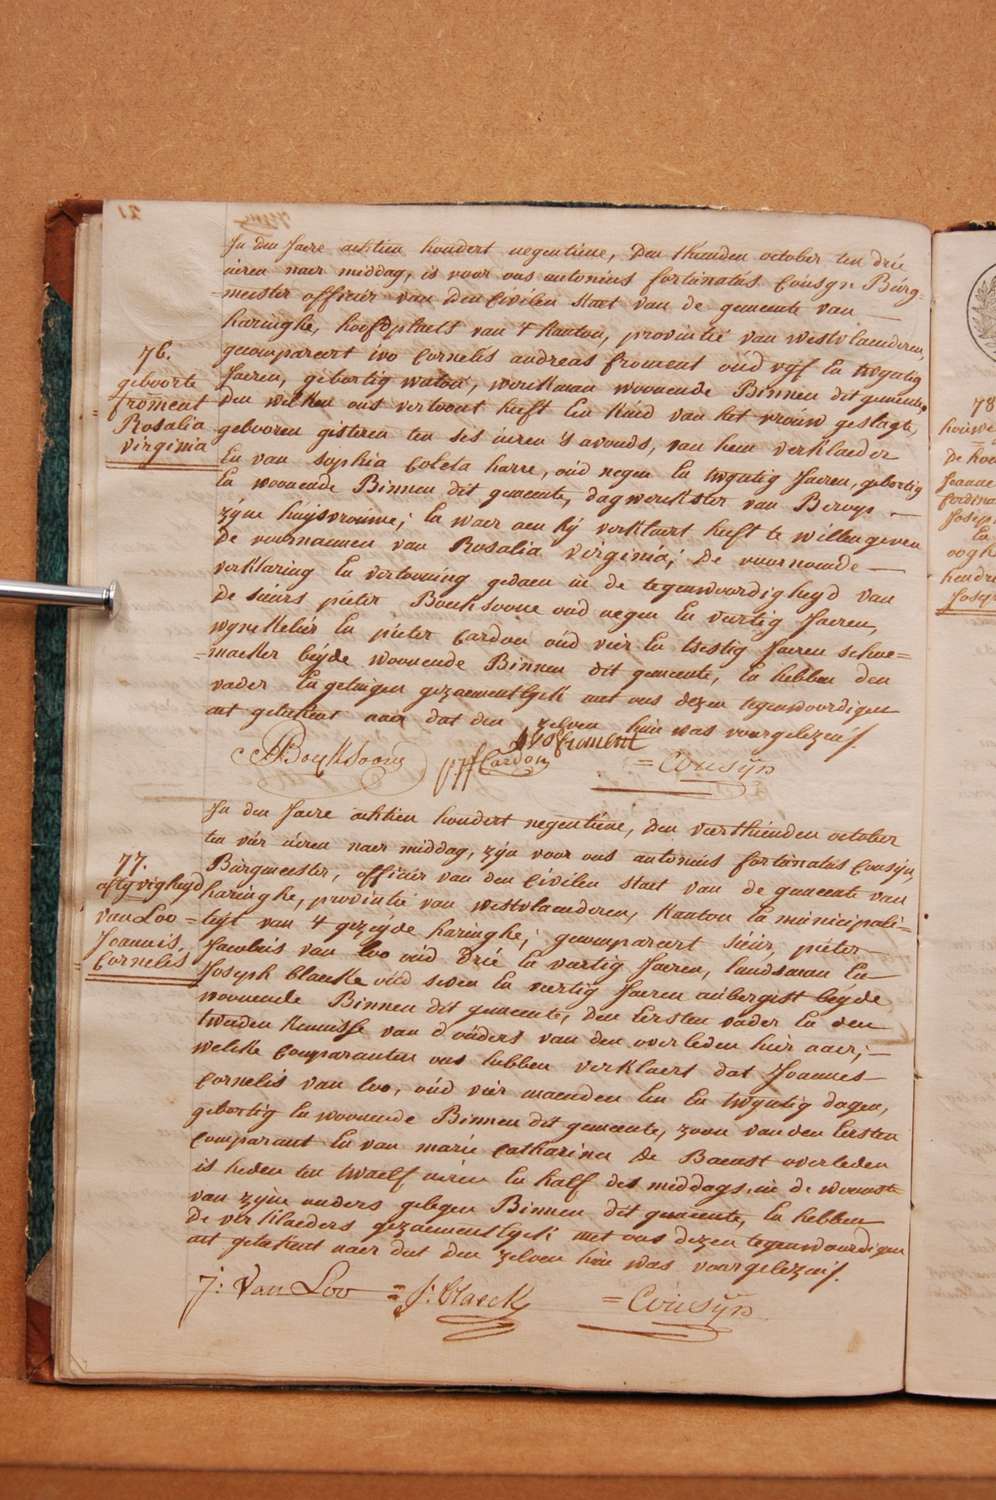 21
76.
geboorte
froment
Rosalia
virginia
In den Jaere achtien hondert negentiene, Den thienden october ten drie
uren naer middag, is voor ons antonius fortunatus Cousyn Burg=
=meester officier van den Civilen staet van de gemeente van
haringhe, hoofdplaets van 't kanton, provintie van westvlaenderen,
gecompareert ivo Cornelis andreas froment oud vyf En twyntig
Jaeren, gebortig watou, werkman woonende Binnen dit gemeente,
den welken ons vertoont heeft Een kind van het vrouw geslagte,
gebooren gisteren ten ses uren 's avonds, van hem verklaeder
En van sophia Coleta harre, oud negen En twyntig Jaeren, gebortig
En woonende Binnen dit gemeente, dagwerkster van Beroep
zyne huysvrouwe; En waer aen hy verklaert heeft te willen geven
De voornaemen van Rosalia virginia; De voornoemde
verklaring En vertooning gedaen in de tegenwoordigheyd van
De sieurs pieter Boeksoone oud negen En veertig Jaeren,
wynkelier En pieter Cardon oud vier En tsestig Jaeren schoe=
=maeker beyde woonende Binnen dit gemeente, En hebben den
vader En getuigen gezaementlyck met ons dezen tegenwoordigen
act geteekent naer dat den zelven hun was voorgelezen.
Boeksoone
Cardon
ivo froment
= Cousyn
77.
aflyvigheyd
van Loo
Joannis
Cornelis
In den Jaere achtien hondert negentiene, den veerthienden october
ten vier uren naer middag, zyn voor ons antonius fortunatus Cousyn,
Burgmeester, officier van den Civilen staet van de gemeente van
haringhe, provintie van westvlaenderen, kanton En municipali=
=teyt van 't gezeyde haringhe; gecompareert sieur, pieter
Jacobus van loo oud drie En veertig Jaeren, landsman En
Joseph Claecke oud seven En veertig Jaeren aubergist beyde
woonende Binnen dit gemeente, den Eersten vader En den
tweeden kennisse van d'ouders van den overleden hier naer;
welcke Comparanten ons hebben verklaert dat Joannes
Cornelis van loo, oud vier maenden Een En twyntig dagen,
gebortig En woonende Binnen dit gemeente, zoon van den Eersten
Comparant En van marie Catharina de Baeast overleden
is heden ten twaelf uren En half des middags, in de woonste
van zyne ouders gelegen Binnen dit gemeente, En hebben
de verklaeders gezaementlyck met ons dezen tegenwoordigen
act geteekent naer dat den zelven hun was voorgelezen.
J: Van Loo
= J: Claeck
= Cousyn
78